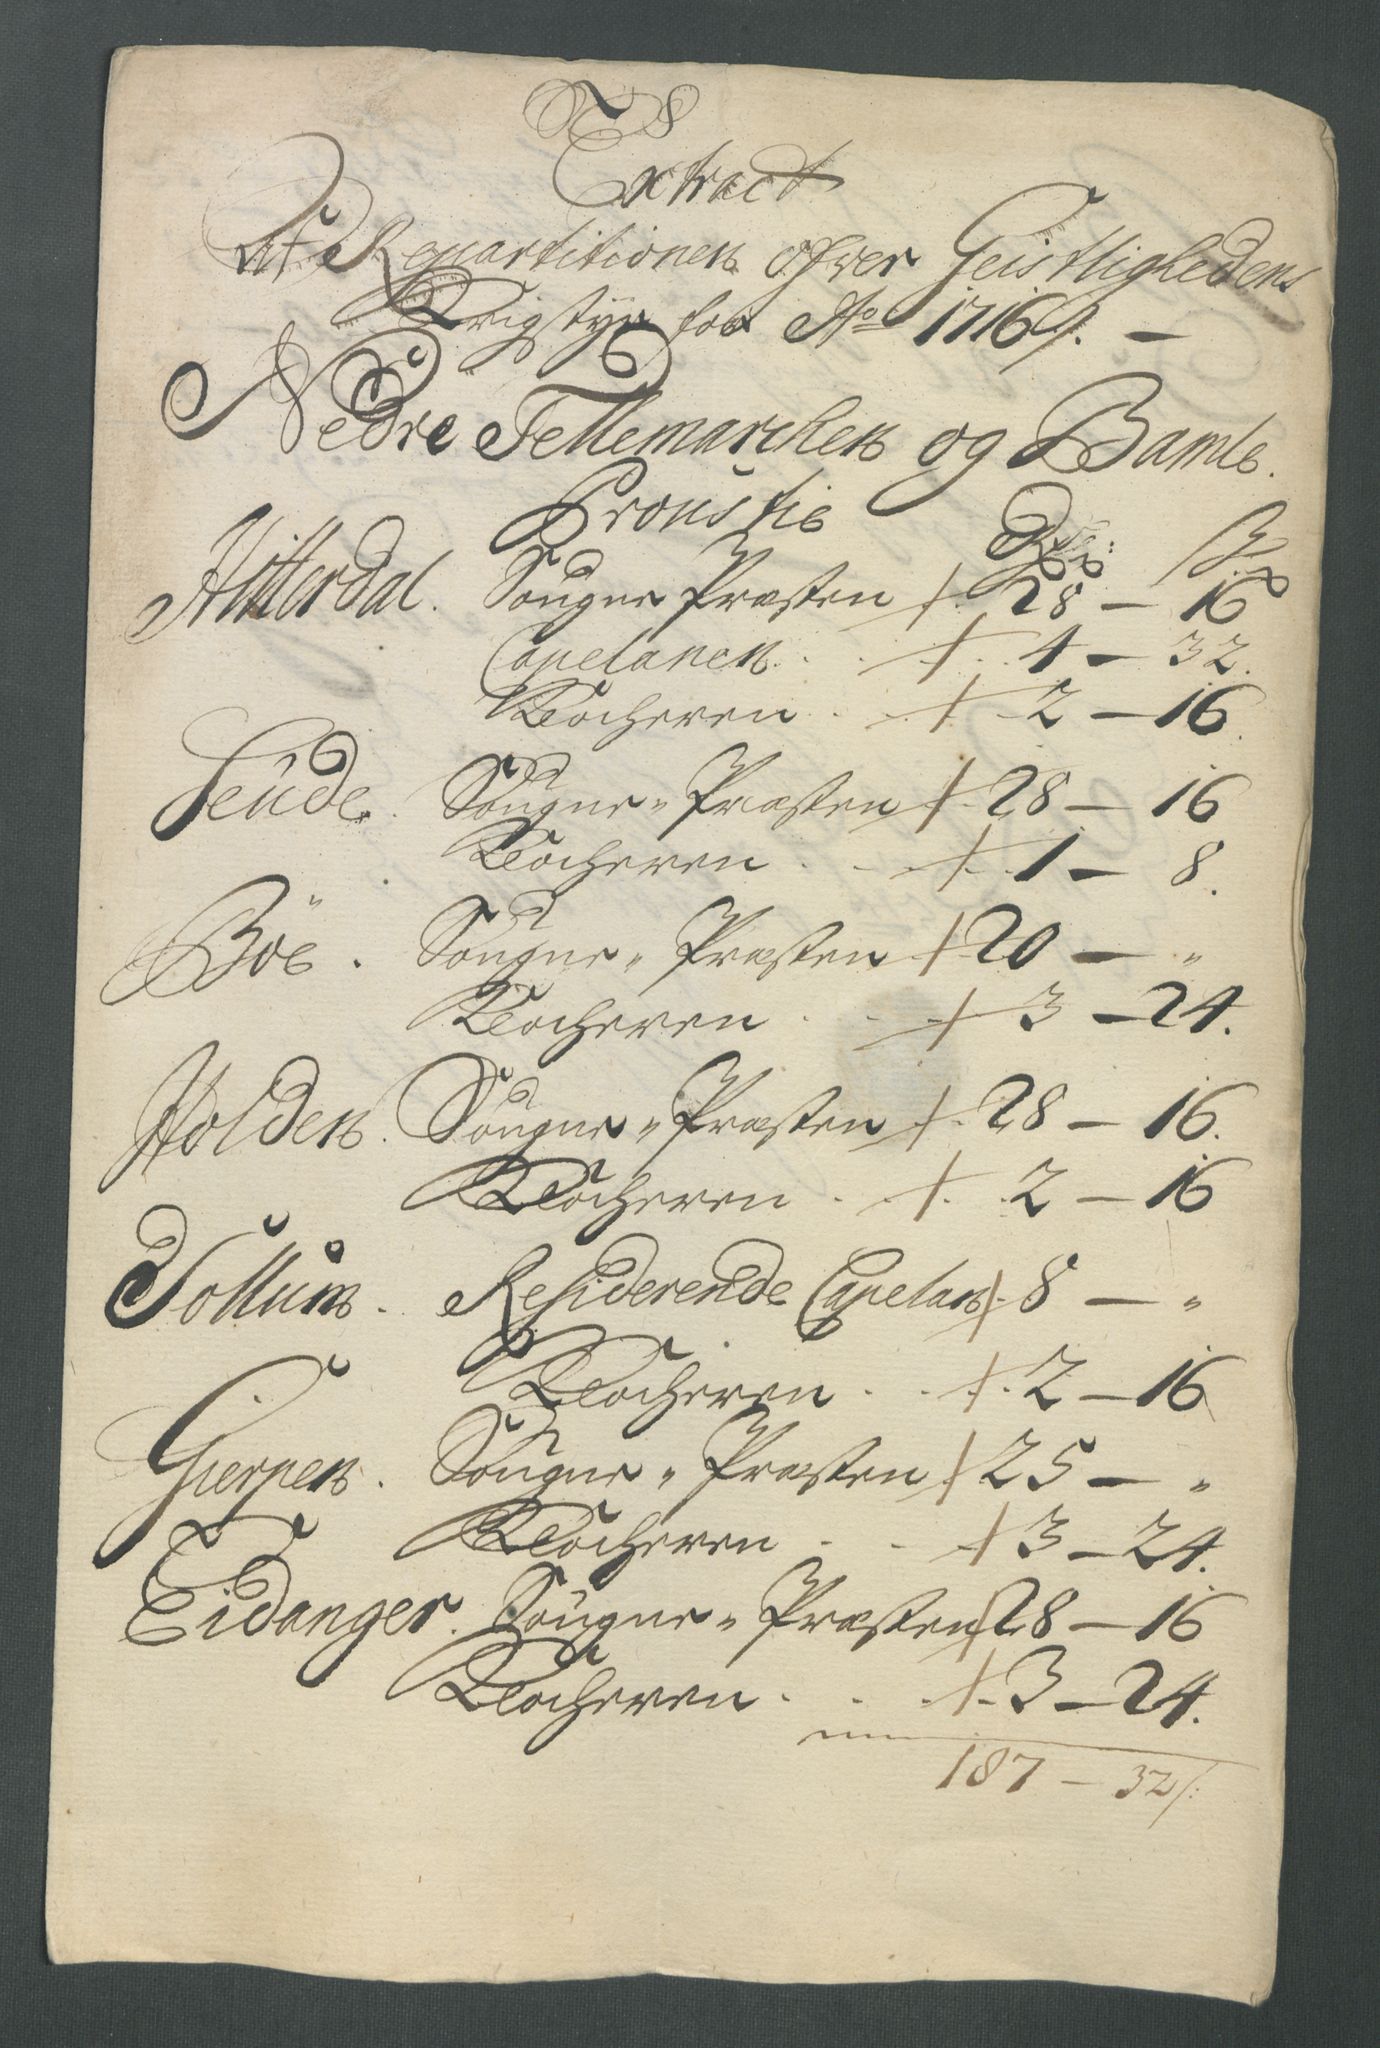 Extract
Af Repartitionen ofver Geistlighedens
Krigstyr for Ao 1716/. —
Nedre Tellemarchen og Bamle.
Proustie Rdr: ß
Hitterdal. Sougne Præsten + 28 — 16
Capelanen . . + . 4 — 32.
Klocheren . . + 2 — 16.
Seude. Sougne„ Præsten + 28 — 16
Klocheren . . + . 1 — 8.
Böe. Sougne„ Præsten + 20 — „
Klocheren . . + 3 — 24.
Holden. Sougne„ Præsten + . 28 — 16.
Klocheren . . + . 2 — 16
Sollum. Residerende Capelan + 8 — „
Klocheren . . + . 2 — 16
Gierpen. Sougne„ Præsten + 25 — „
Klocheren . . + 3 — 24.
Eidanger. Sougne„ Præsten + 28 — 16
Klocheren . . + . 3 — 24.
187 — 32/: